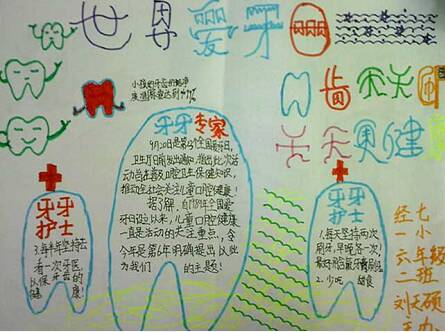 世界爱牙日
齿天天
天天更健康
小孩的牙齿的
牙牙专家
9月20日是第 个全国爱牙日,
卫生厅日前发出通知,推出此次活
动旨在普及口腔卫生保健知识,
推动全社会关注儿童口腔健康!
据了解,自1989年全国爱
牙日设立以来,儿童口腔健康
一直是活动的关注重点,今
今年是第6年明确提出以此
为我们 的主题!
牙牙
护士
3.每半年坚持去
看一次牙医
以保牙齿的
健康!
牙牙
护士
1.每天坚持两次
刷牙,早晚各一次!
2.少吃 甜食
经七
一小
六年级
二班
刘天硕